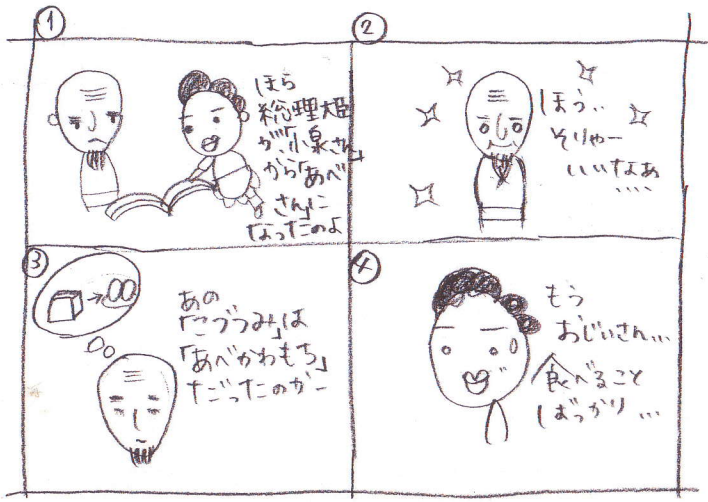 ①
ほら
総理大臣
が、「小泉さん」
から「あべ
さん」に
なったのよ
②
ほう、、
そりゃー
いいなあ
....
③
あの
「こづつみ」は
「あべかわもち」
だったのかー
④
もう
おじいさん...
食べること
ばっかり...